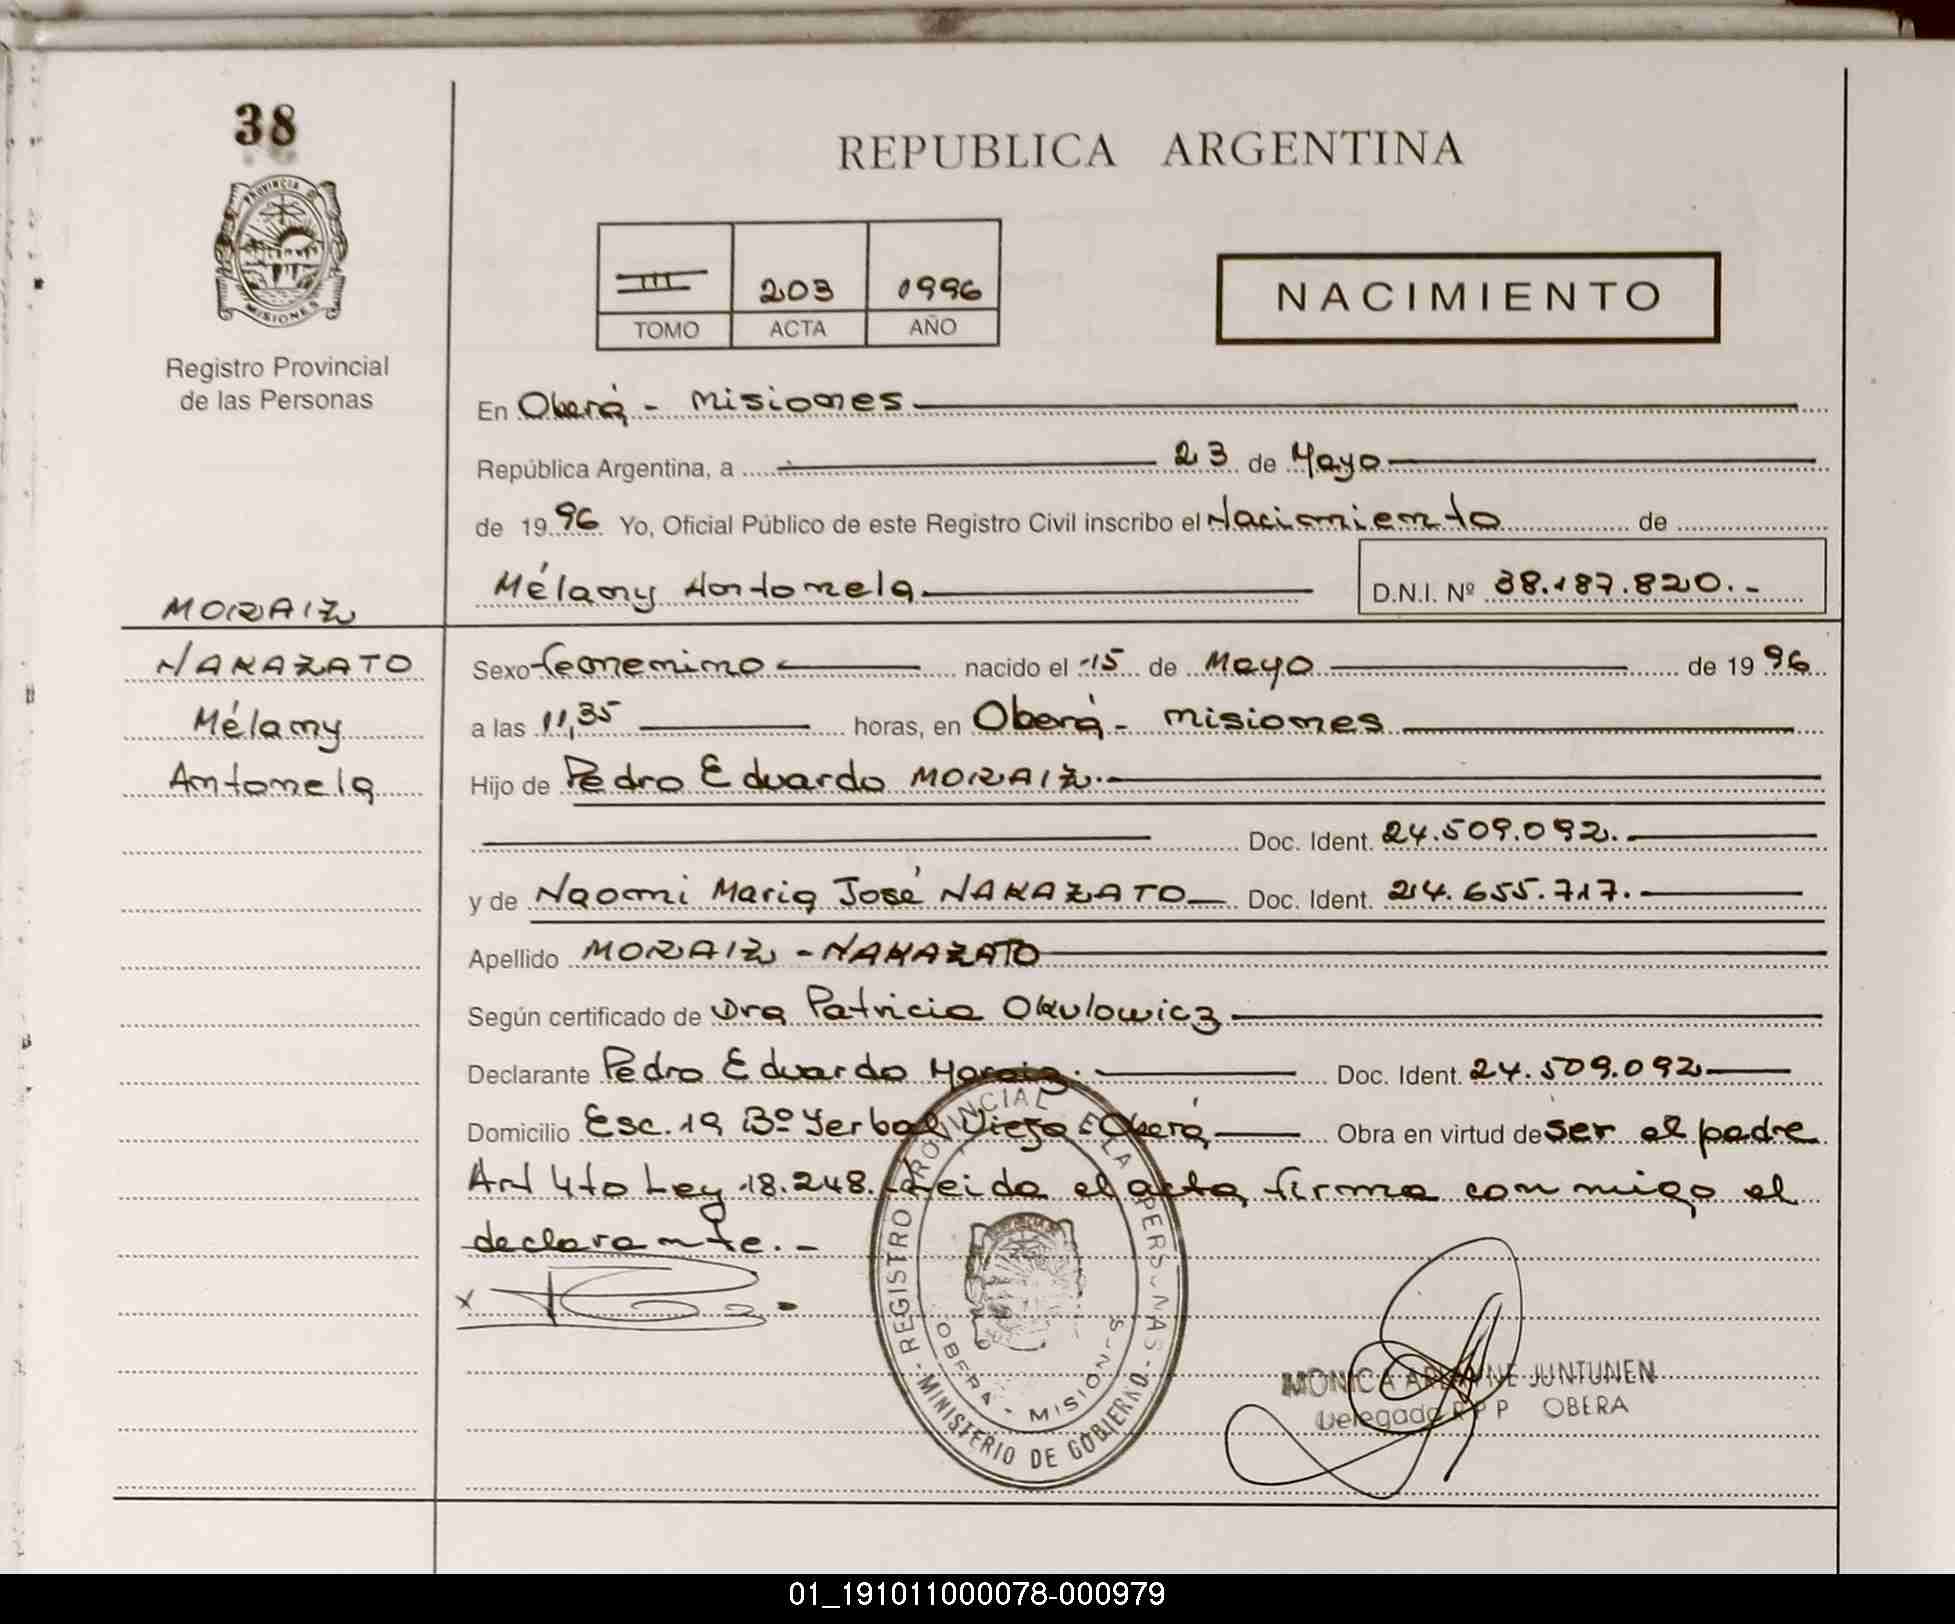 38
REPUBLICA ARGENTINA
PROVINCIA D
MISIONES
III 203 1996
TOMO ACTA AÑO
NACIMIENTO
Registro Provincial
de las Personas
En Oberá - Misiones
República Argentina, a 23 de Mayo
de 1996 Yo, Oficial Público de este Registro Civil inscribo el Nacimiento de
Mélany Antonela D.N.I. Nº 38.187.820.-
MORAIZ
NAKAZATO
Mélany
Antonela
Sexo femenino nacido el 15 de Mayo de 1996
a las 11,35 horas, en Oberá - Misiones
Hijo de Pedro Eduardo MORAIZ.
Doc. Ident. 24.509.092.
y de Naomi Maria José NAKAZATO Doc. Ident. 24.655.717.
Apellido MORAIZ - NAKAZATO
Según certificado de Dra Patricia Okulowicz
Declarante Pedro Eduardo Moraiz. Doc. Ident. 24.509.092
Domicilio Esc. 19 Bº Yerbal Viejo - Oberá Obra en virtud de ser el padre
Art 4to Ley 18.248. Leida el acta, firma conmigo el
declarante.-
x
REGISTRO PROVINCIAL E LA PERS NAS
OBERA - MISION S
MINISTERIO DE GOBIERNO
MONICA JUNTUNEN
Delegada R P P OBERA
01_191011000078-000979